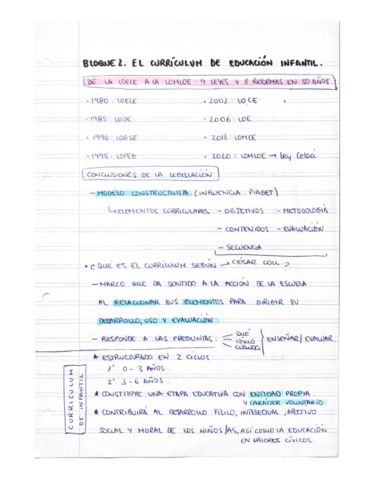 BLOQUE 2. EL CURRÍCULUM DE EDUCACIÓN INFANTIL.
DE LA LOECE A LA LOMLOE: 9 LEYES Y 8 REFORMAS EN 50 AÑOS.
· 1980: LOECE · 2002: LOCE
· 1985: LODE · 2006: LOE
· 1990: LOGSE · 2013: LOMCE
· 1995: LOPEG · 2020: LOMLOE → Ley Celaá
CONCLUSIONES DE LA LEGISLACIÓN
- MODELO CONSTRUCTIVISTA (INFLUENCIA: PIAGET)
↳ ELEMENTOS CURRICULARES - OBJETIVOS - METODOLOGÍA
- CONTENIDOS - EVALUACIÓN
- SECUENCIA
· ¿QUÉ ES EL CURRÍCULUM SEGÚN → CÉSAR COLL?
- MARCO QUE DA SENTIDO A LA ACCIÓN DE LA ESCUELA
AL RELACIONAR SUS ELEMENTOS PARA DIRIGIR SU
DESARROLLO, USO Y EVALUACIÓN.
- RESPONDE A LAS PREGUNTAS: QUÉ CÓMO CUÁNDO ENSEÑAR/EVALUAR.
* ESTRUCTURADO EN 2 CICLOS.
1º. 0-3 AÑOS.
2º. 3-6 AÑOS.
* CONSTITUYE UNA ETAPA EDUCATIVA CON ENTIDAD PROPIA
Y CARÁCTER VOLUNTARIO.
* CONTRIBUIRÁ AL DESARROLLO FÍSICO, INTELECTUAL, AFECTIVO
SOCIAL Y MORAL DE LOS NIÑOS/AS, ASÍ COMO LA EDUCACIÓN
EN VALORES CÍVICOS.
CURRICULUM
DE INFANTIL